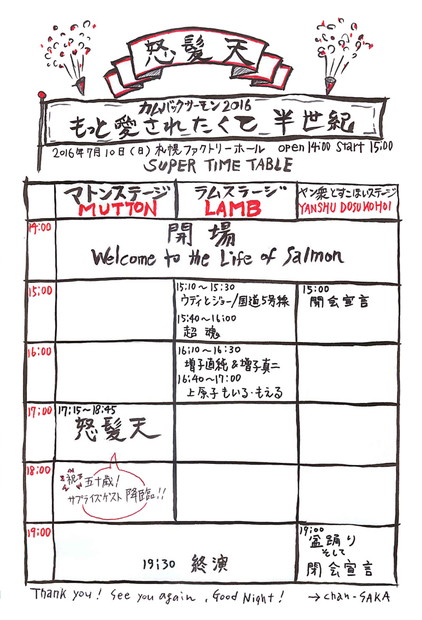 怒髪天
カムバックサーモン2016
もっと愛されたくて半世紀
2016年7月10日(日)札幌ファクトリーホール open 14:00 start 15:00
SUPER TIME TABLE
マトンステージ
MUTTON
ラムステージ
LAMB
ヤン衆どすこほいステージ
YANSHU DOSUKOHOI
14:00
開場
Welcome to the Life of Salmon
15:00
15:10～15:30
ウディとジョー/国道5号線
15:40～16:00
超魂
15:00
開会宣言
16:00
16:10～16:30
増子直純&増子真二
16:40～17:00
上原子もいる・もえる
17:00
17:15～18:45
怒髪天
18:00
祝 五十歳!
サプライズゲスト降臨!!
19:00
19:30 終演
19:00
盆踊り
そして
閉会宣言
Thank you! See you again, Good Night! →chan-SAKA